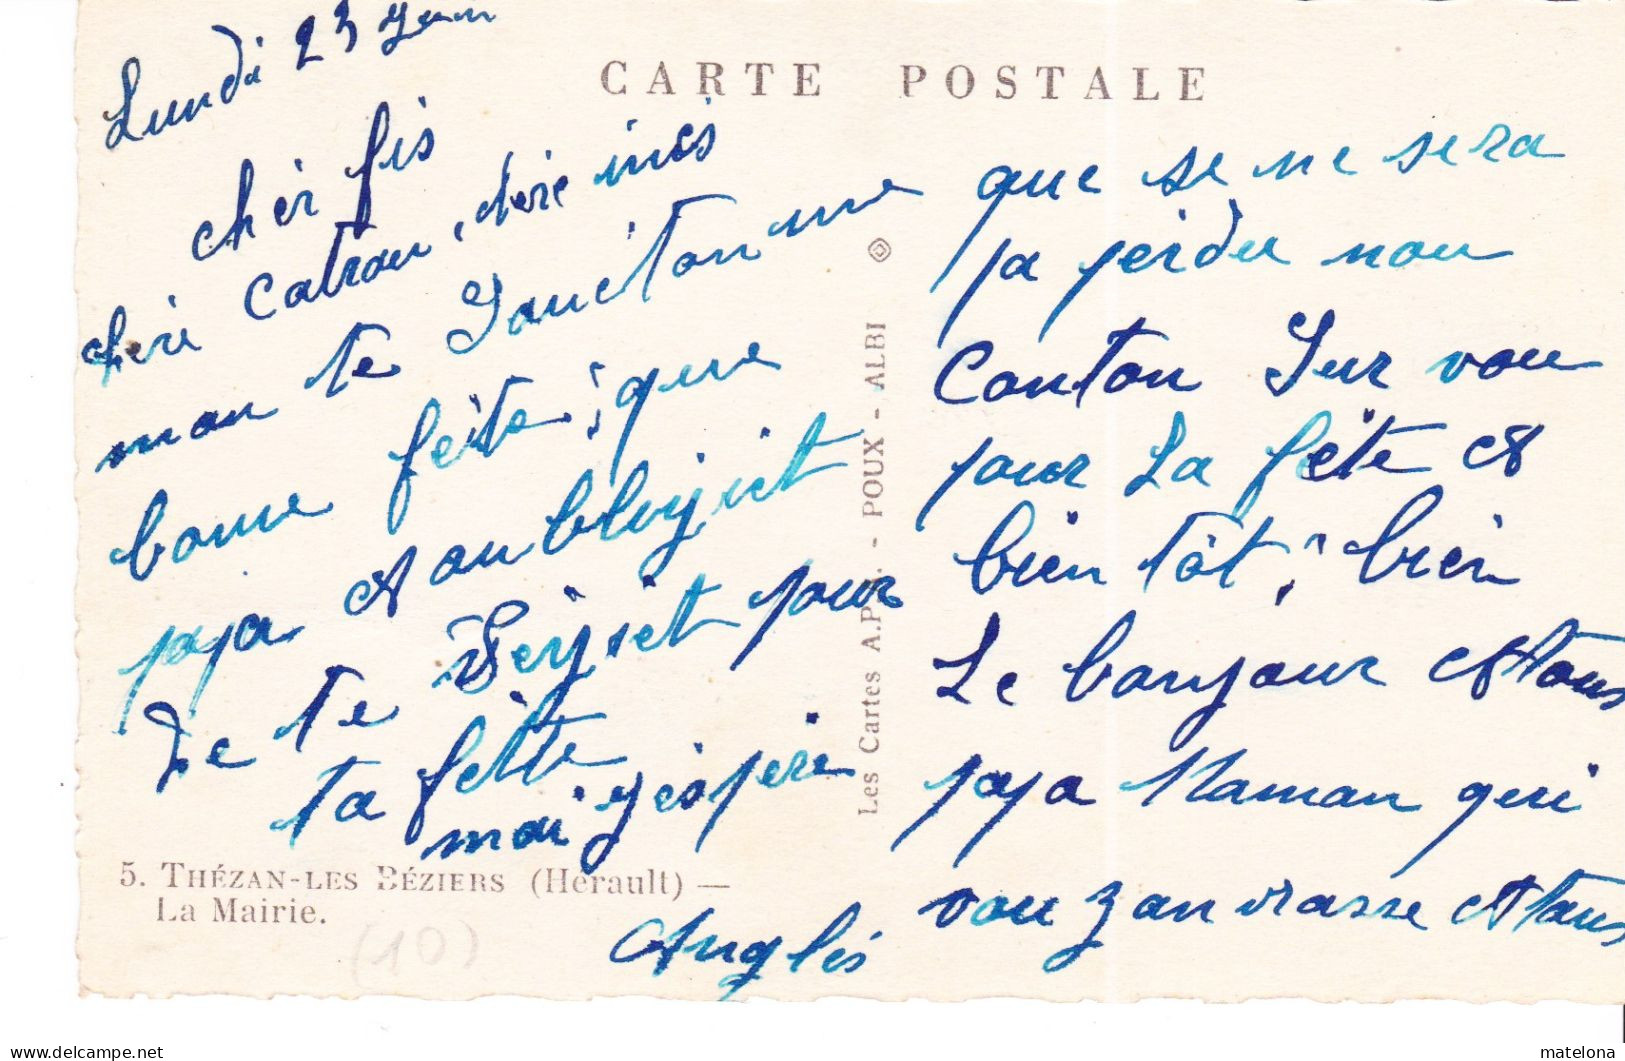 CARTE POSTALE
Lundi 23 Juin
cher fis
chere Catrou, chere ines
mon te Souciton une
bonne feite, que
papa A oublijet
De te Seyiet pour
ta fette
moi j'espere
que se ne sera
pa perdu nou
Conton Sur vou
pour La fête A
bien tôt, bien
Le bonjour A tous
papa Maman qui
vou zan vrasse A tous
Anglès
Les Cartes A.P. - POUX - ALBI
5. THÉZAN-LES BÉZIERS (Hérault) —
La Mairie.
(10)
delcampe.net
matelona